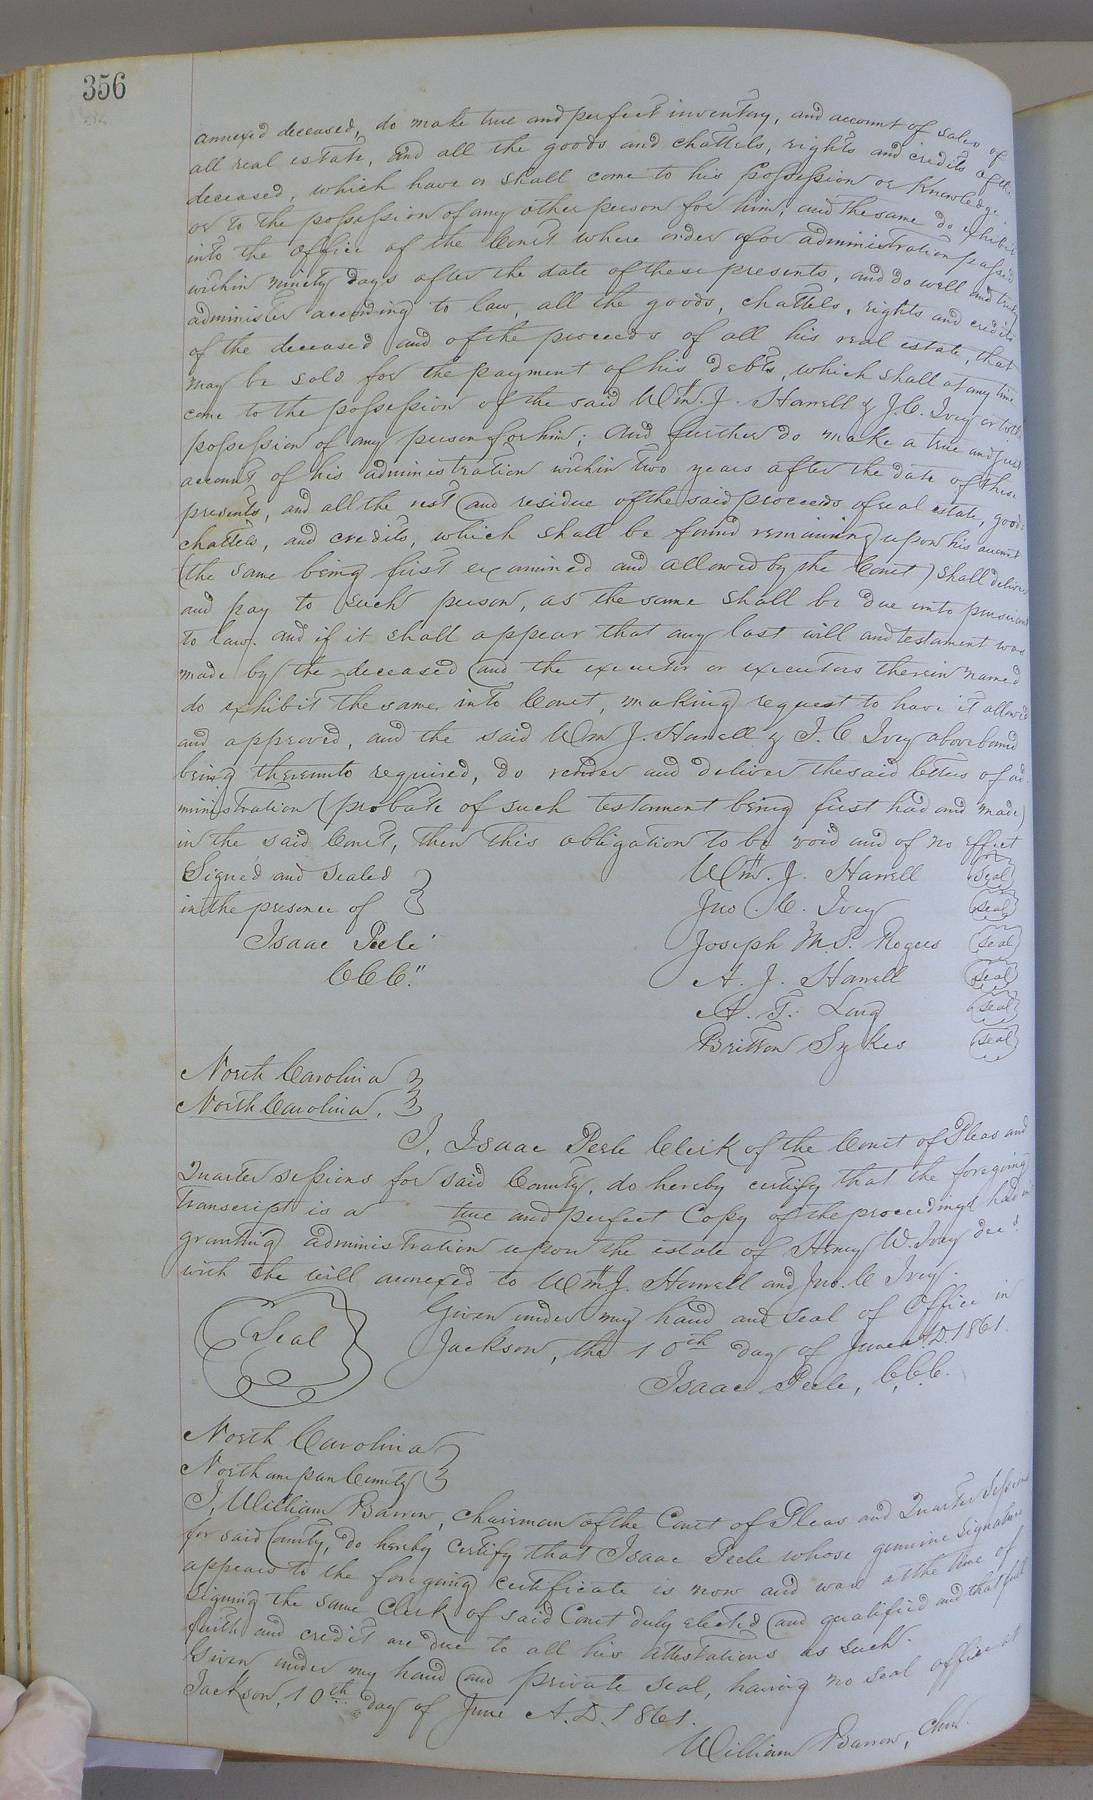 356
annexed deceased, do make true and perfect inventory, and account of sales of
all real estate, and all the goods and chattels, rights and credits of the
deceased, which have or shall come to his possession or knowledge,
or to the possession of any other person for him, and the same do exhibit
into the Office of the Court where order for administration passed
within ninety days after the date of these presents, and do well and truly
administer according to law, all the goods, chattels, rights and credits
of the deceased and of the proceeds of all his real estate, that
may be sold for the payment of his debts, which shall at any time
come to the possession of the said Wm. J. Harrell & J. C. Ivey or to the
possession of any person for him; and further do make a true and just
account of his administration within two years after the date of these
presents, and all the rest and residue of the said proceeds of real estate, goods
chattels, and credits, which shall be found remaining upon his account
(the same being first examined and allowed by the Court) shall deliver
and pay to such person, as the same shall be due unto pursuant
to law. and if it shall appear that any last will and testament was
made by the deceased and the executor or executors therein named
do exhibit the same into Court, making request to have it allowed
and approved, and the said Wm J. Harrell & J. C Ivey above bound
being thereunto required, do render and deliver the said letters of ad-
ministration (probate of such testament being first had and made)
in the said Court, then this obligation to be void and of no effect
Signed and Sealed } Wm. J. Harrell (seal)
in the presence of } Jno. C. Ivey (seal)
Isaac Peele Joseph M. S. Rogers (seal)
C C C." A. J. Harrell (seal)
A. T. Long (seal)
Britton Sykes (seal)
North Carolina }
North Carolina. }
I, Isaac Peele Clerk of the Court of Pleas and
Quarter Sessions for said County, do hereby certify that the foregoing
transcript is a true and perfect Copy of the proceedings had in
granting administration upon the estate of Henry W. Ivey decd.
with the will annexed to Wm J. Harrell and Jno. C Ivey.
Given under my hand and seal of Office in
Seal
Jackson, the 10th day of June A.D. 1861.
Isaac Peele, C.C.C.
North Carolina }
Northampan County }
I, William Barrow, Chairman of the Court of Pleas and Quarter Sessions
for said County, do hereby certify that Isaac Peele whose genuine signature
appears to the foregoing certificate is now and was at the time of
signing the same Clerk of said Court duly elected and qualified and that full
faith and credit are due to all his attestations as such.
Given under my hand and private seal, having no seal office at
Jackson, 10th day of June A.D. 1861.
William Barrow, Chm.